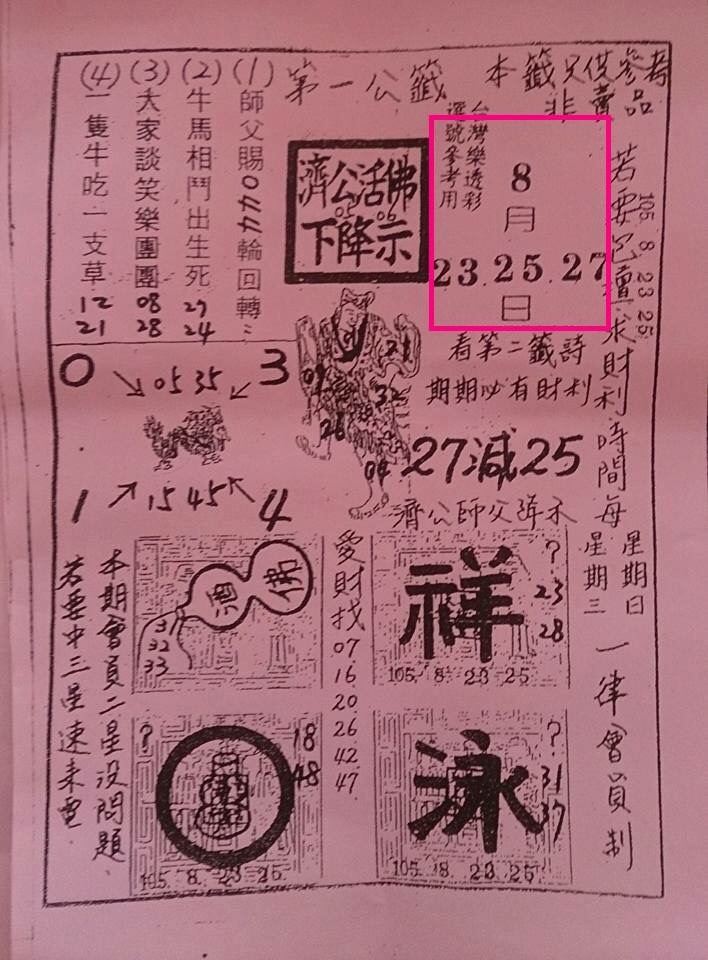 本籤只供參考
非賣品
第一公籤
(1)師父賜0カカ輪回轉
(2)牛馬相鬥出生死
24
(3)大家談笑樂團團
08
28
(4)一隻牛吃一支草
12
21
濟公活佛
05 06
下降示
台灣樂透彩
選號參考用
8
月
23.25.27
日
105 8 23 25
求財利時間每
星期日
星期三
一律會員制
看第二籤詩
期期必有財利
27減25
濟公師父降示
0
3
05 35
15 45
1
4
21
32
26
04
愛財找
07
16
20
26
42
47
佛
酒
3
32
33
祥
?
23
28
105. 8 23 25
本期會員二星沒問題
若要中三星速來電
?
18
48
105. 8. 23 25
泳
?
31
37
105 8 23 25